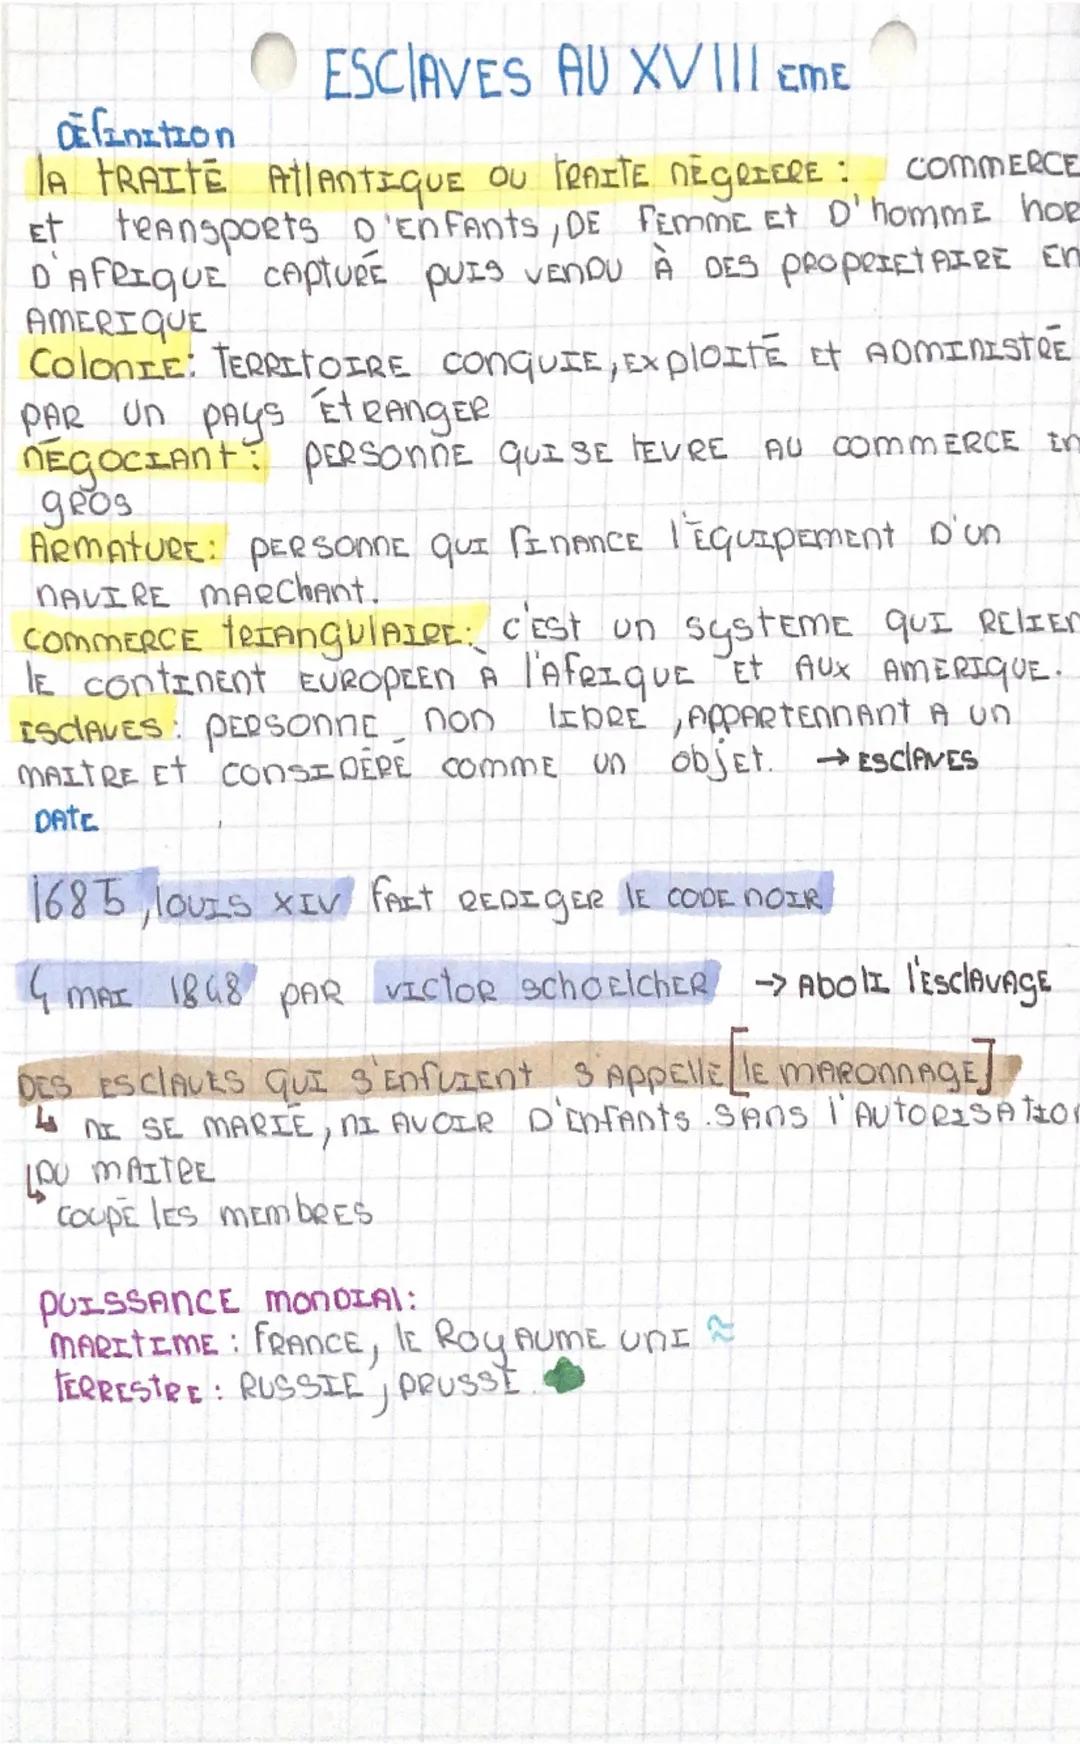 ESCLAVES AU XVIII EME
DÉfinition
lA tRAITÉ AtlAntIQUE OU tRAITE nÉgRIERE : COMMERCE
Et tRAnspoRts D'EnfAnts, DE fEMME Et D'hommE hoR
D'AfRIQUE CAptURÉ puIs VENDU À DES pRopRIEtAIRE En
AMERIQUE
ColonIE: TERRItOIRE conquIE, ExploItÉ Et ADMINISTRÉ
PAR un pAys ÉtRANGER
nÉgocIAnt: pERsonnE QUI SE lEVRE AU COMMERCE En
gRos
ARmAtURE: pERsonnE QUI fInAncE l'ÉQUIpEmEnt D'un
nAVIRE mARchAnt.
COMMERCE tRIAngulAIRE: c'Est un systEME QUI RElIEn
lE contInEnt EUROpEEn A l'AfRIQUE Et AUX AMERIQUE.
EsclAVES: pERsonnE non lIbRE, AppARtEnnAnt A un
MAITRE Et consIDÉRÉ commE un objEt. → EsclAVES
DAtE
1685, louIs XIV fAIt REDIgER lE CODE noIR
4 mAI 1848 pAR VIctoR schoElchER → AbolI l'EsclAVAgE
DES EsclAVES QUI s'EnfuIEnt s'AppEllE [lE mARonnAgE]
↳ nI SE mARIÉ, nI AVOIR D'EnfAnts.SAns l'AUtoRIsAtIon
DU mAItRE
↳ coupÉ lEs mEmbREs
puIssAncE monDIAl:
mARItImE : fRAncE, lE RoyAumE unI ≈
tERREstRE : RussIE, pRussE.